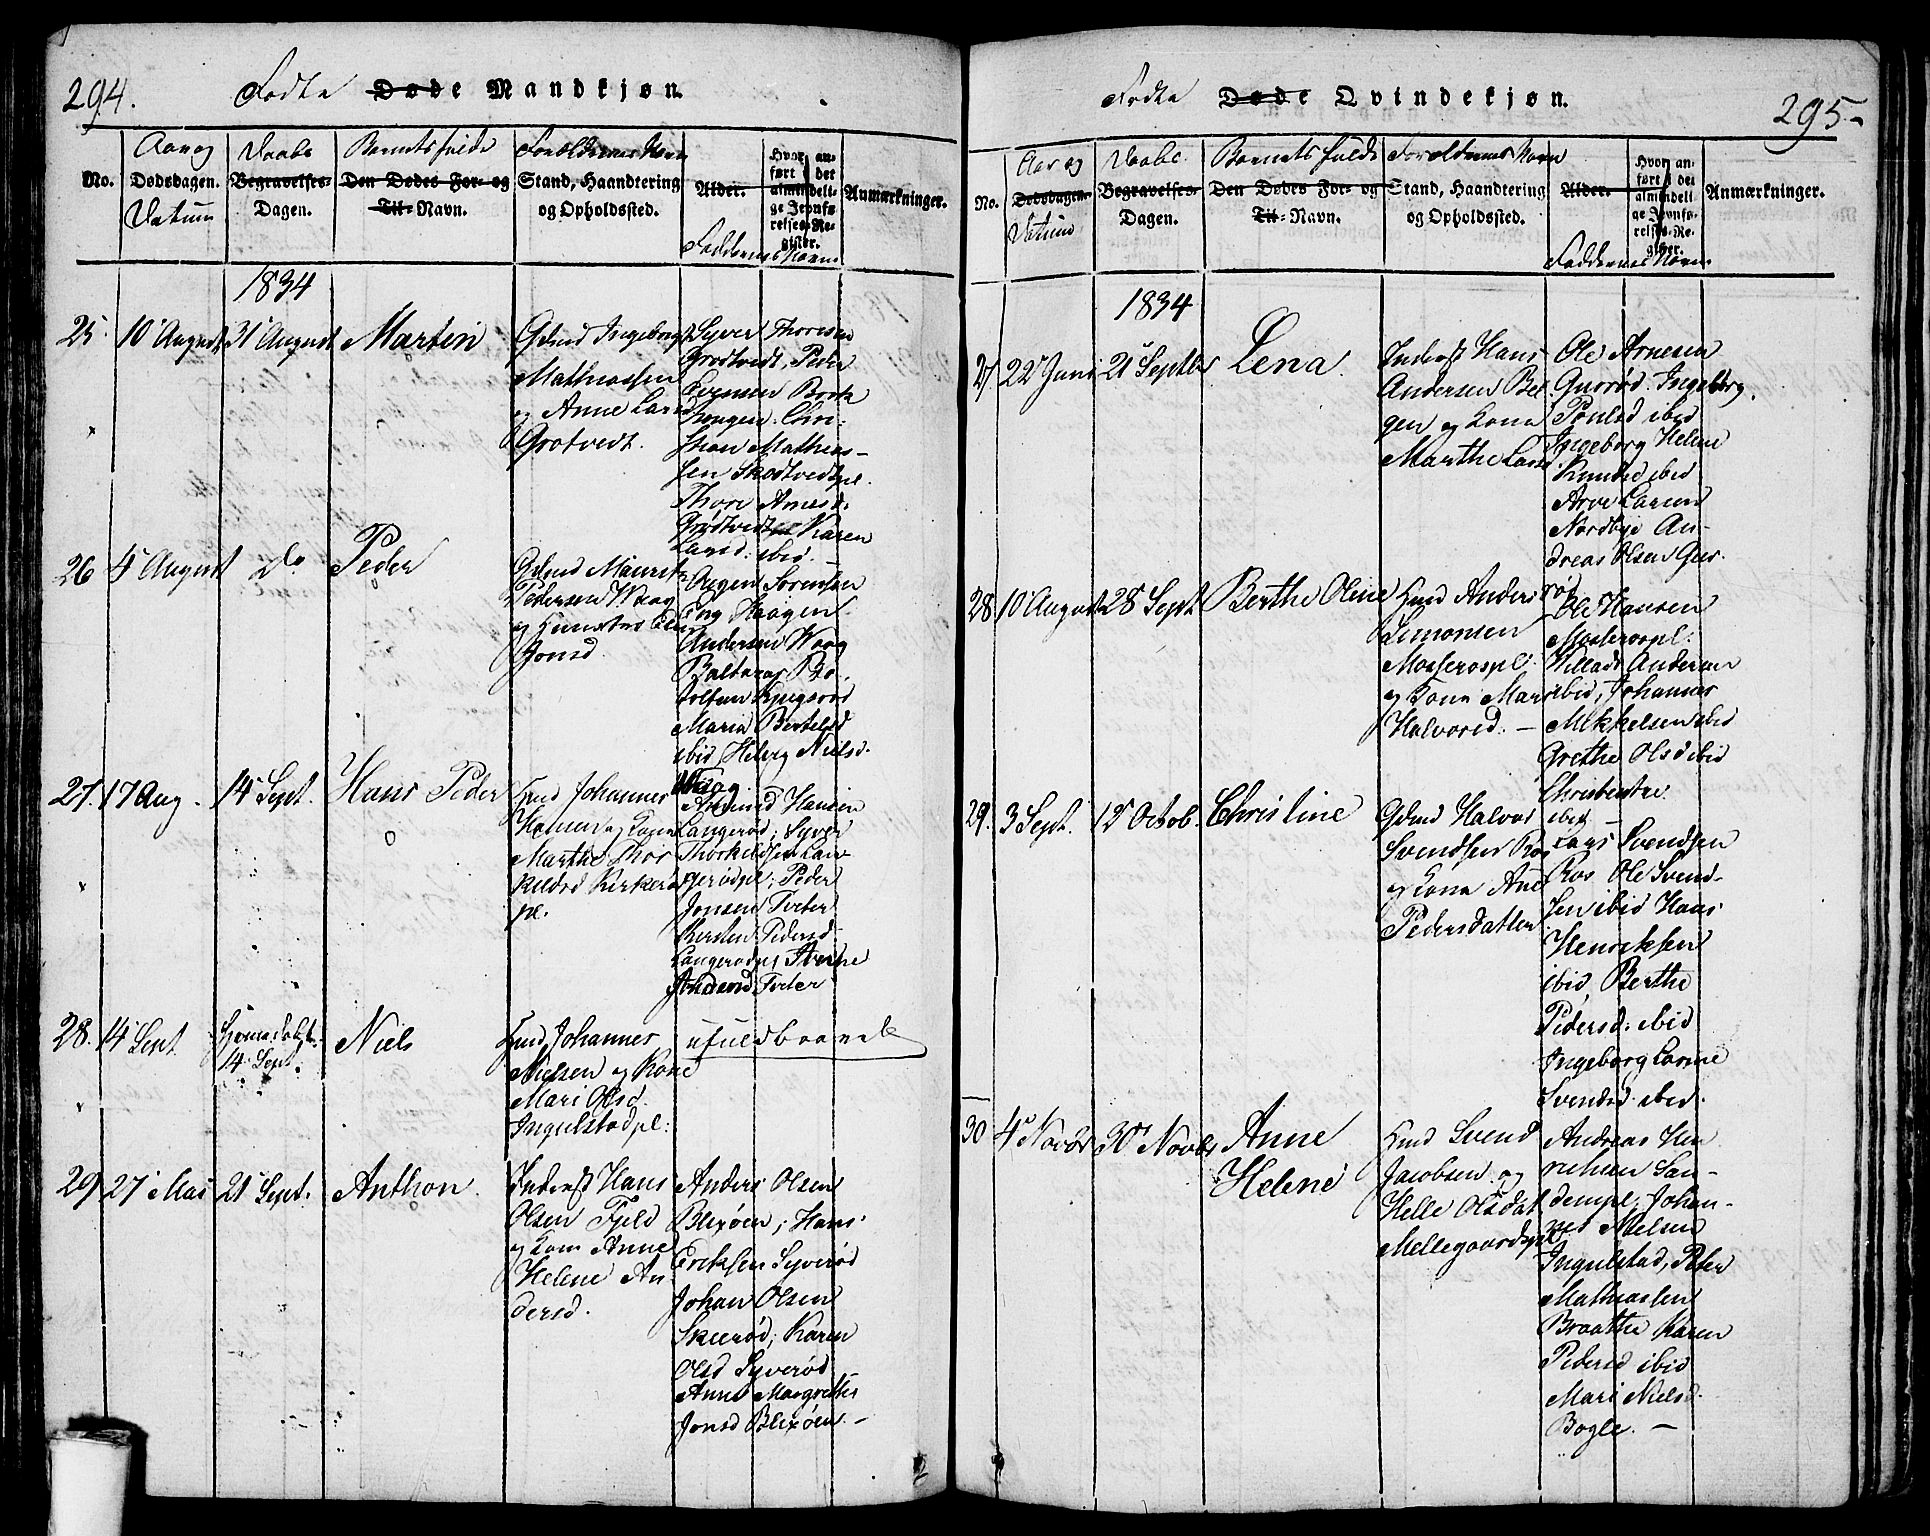 294.
Fødte Døde Mandkjøn.
No.
Aar og
Dødsdagen.
Datum
Daabs
Begravelses-
Dagen.
Barnets fulde
Den Dødes For- og
Til-Navn.
Forældrenes Navn
Stand, Haandtering
og Opholdssted.
Alder.
Hvor an-
ført i det
almindeli-
ge Jevnfø-
relses-Re-
gister.
Faddernes Navne
Anmærkninger.
1834
25. 10 August 31 August Martin
Gdmd Ingeborgt
Mathiassen
og Anne Larsd
Grotvedt.
Syver Thoresen
Grødtvedt, Peder
Braten
Chri-
stian Mathias-
sen Skodtvedtpl.
Thore Arnesd:
Grødtvedt Karen
Larsd: ibid. -
26 4 August do Peder
Gdmd Mauritz
Pedersen Waag
og Hustrue
Jonsd.
Aagen Sørensen
Eng Haagen
Andersen Waag
Baltazar Ro-
Maria Bertelsd
ibid Heberg Nielsd.
Waag
27. 17 Aug. 14 Sept. Hans Peder
Hmd Johannes
Hansen og Kone
Marthe Thor
kildsd Kirkerø
pl.
Amund Hansen
Langerød; Syver
Thorkildsen Lan-
gerødpl; Peder
Jonsen Tveter
Kersten Pedersd
Langerødpl Anne
Johansd Tveter
28. 14 Sept Hjemmedøbt
14 Sept. Niels
Hmd Johannes
Nielsen og Kone
Mari Olsd.
Ingulstadpl:
ufuldbaaret
29 27 Mai 21 Sept. Anthon
Inderst Hans
Olsen Fjeld
og Kone Anne
Helene An
dersd.
Anders Olsen
Blexøen; Hans
Ericksen Syverød
Johan Olsen
Skeerød; Karen
Olsd Syverød
Anne Margrethe
Jonsd Blexøen. -
295-
Fødte Døde Qvindekjøn.
No.
Aar og
Dødsdagen.
Datum
Daabs
Begravelses-
Dagen.
Barnets fulde
Den Dødes For- og
Til-Navn.
Forældrenes Navn
Stand, Haandtering
og Opholdssted.
Alder.
Hvor an-
ført i det
almindeli-
ge Jevnfø-
relses-Re-
gister.
Faddernes Navne
Anmærkninger.
1834
27 22 Juni 21 Septbr Lena
Inderst Hans
Andersen Bel
gen og Kone
Marthe Larsd
Ole Arnesen
Guorød. Ingeborg
Poulsd ibid
Ingeborg Helene
Knudsd ibid
Arve Larsen
Nordbye An-
dreas Olsen Guo-
rød
28 10 August 28 Sept Berthe Oline
Hmd Anders
Simonsen
Mosserospl:
og Kone Mari
Halvorsd. -
Ole Hansen
Mosserospl:
Killads Andersen
ibid; Johannes
Mikkelsen ibid
Grethe Olsd ibid
Christientze
ibid -
29. 3 Sept. 12 Octob. Christine
Gdmd Halvor
Svendsen Ros
og Kone Ane
Pedersdatter
Lars Svendsen
Ros Ole Svend-
sen ibid Hans
Henriksen
ibid Berthe
Pedersd: ibid
Ingeborg Larine
Svendsd ibid.
30 4 Novbr 30 Novbr Anne
Helene
Hmd Svend
Jacobsen og
Helle Olsdat
Mellegaardspl
Andreas Hen
richsen San-
dempl; Johan-
nes Nielsen
Ingulstad, Peter
Mathiassen
Braathe Karen
Pedersd ibid
Mari Nielsd
Bogle. -